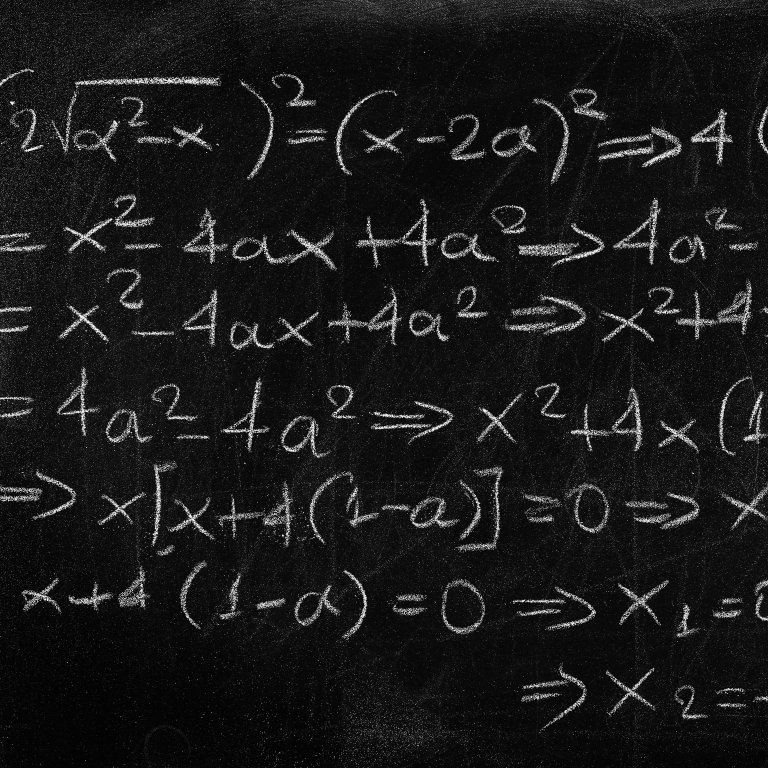 (2√a²-x)²=(x-2a)²⇒4(
=x²-4ax+4a²⇒4a²-
=x²-4ax+4a²⇒x²+4
=4a²-4a²⇒x²+4x(1
⇒x[x+4(1-a)]=0⇒x
x+4(1-a)=0⇒x₁=
⇒x₂=-